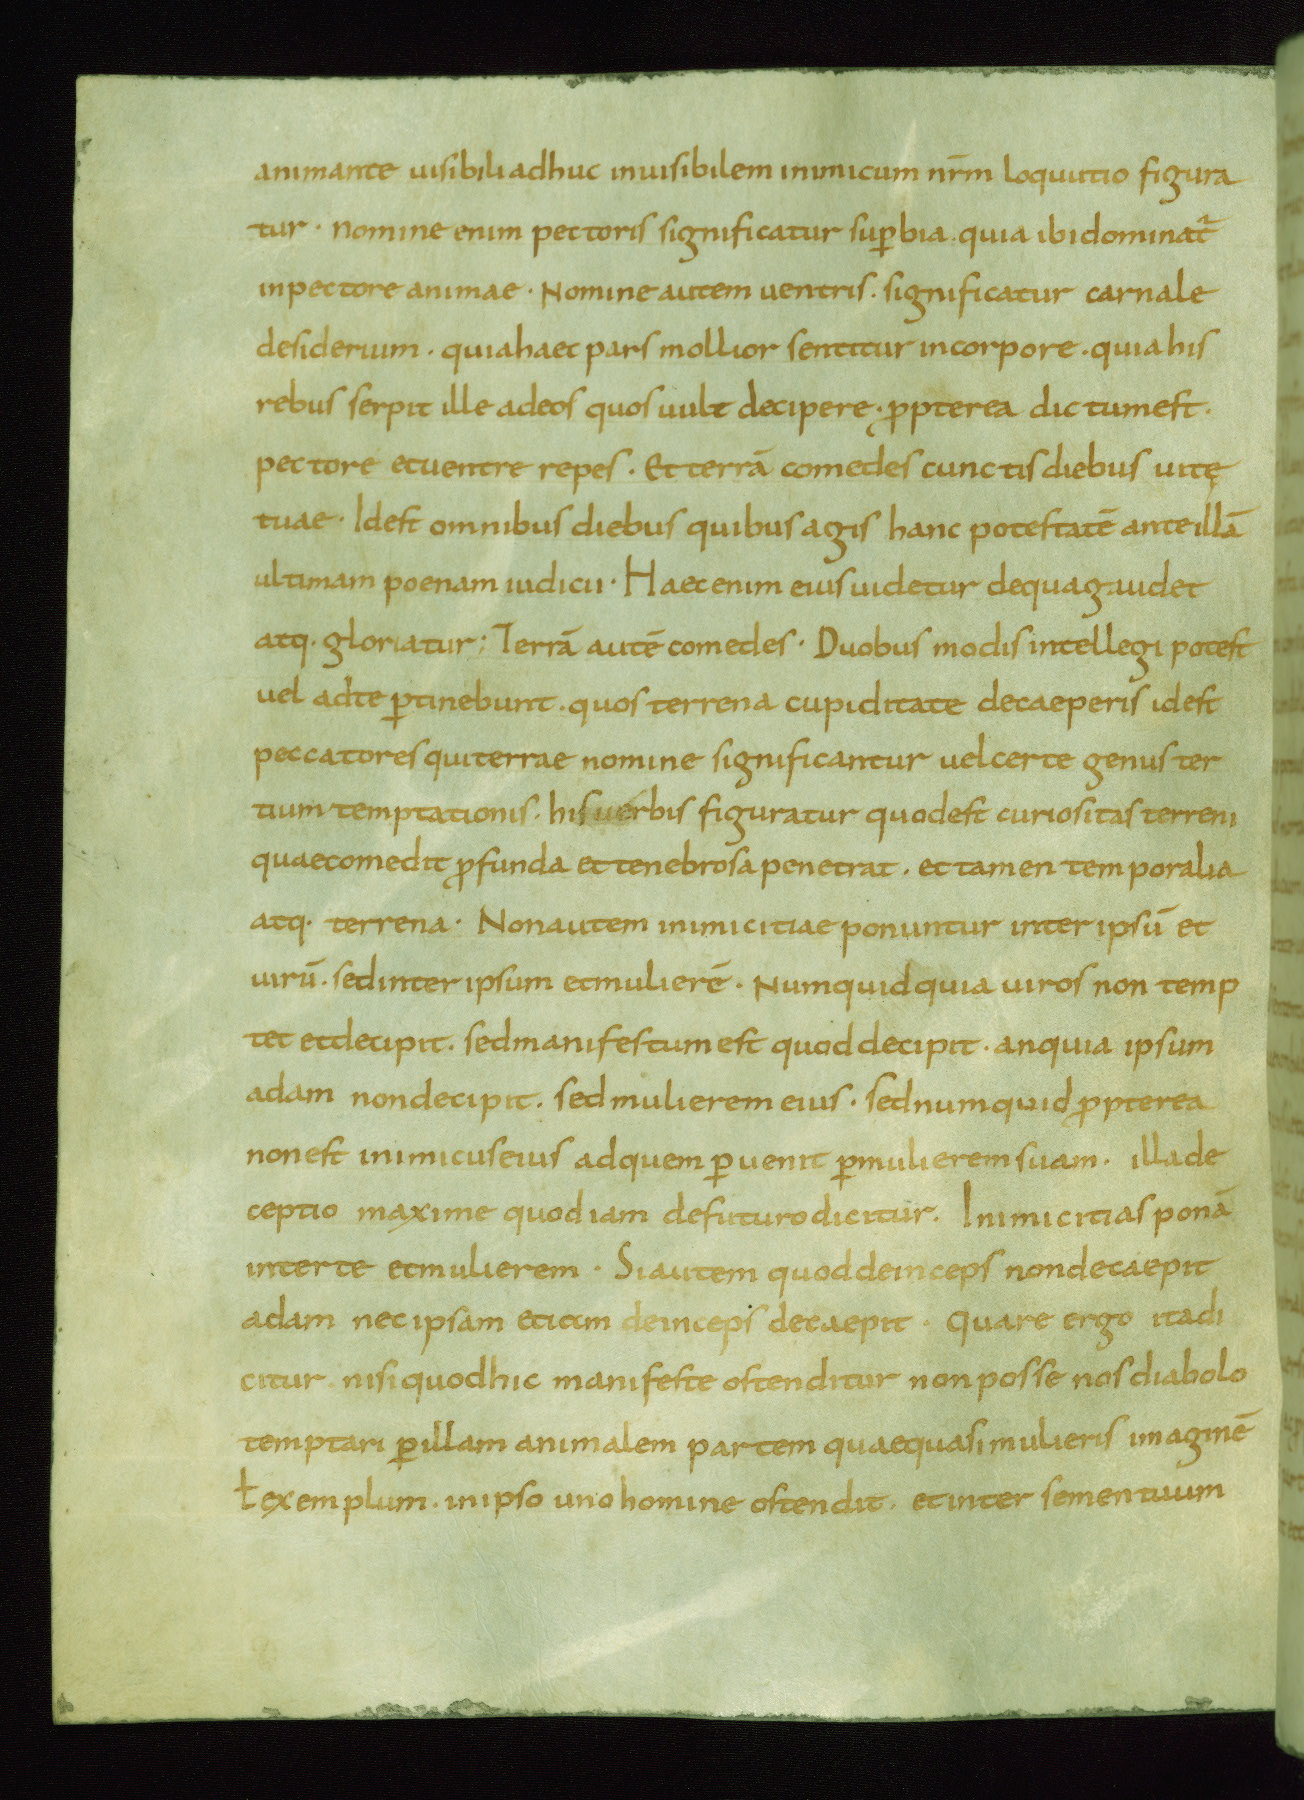 animante uisibili adhuc inuisibilem inimicum nr̄m loquutio figura
tur · nomine enim pectoris significatur suꝑbia . quia ibi dominat᷑
in pectore animae · Nomine autem uentris . significatur carnale
desiderium . quia haec pars mollior sentitur in corpore . quia his
rebus serpit ille ad eos quos uult decipere . ꝓpterea dictum est .
pectore et uentre repes . Et terrā comedes cunctis diebus uitę
tuae · Id est omnibus diebus quibus agis hanc potestatē ante illā
ultimam poenam iudicii · Haec enim eius uidetur de qua gaudet
atq. gloriatur ; Terrā autē comedes · Duobus modis intellegi potest
uel ad te ꝑtinebunt . quos terrena cupiditate decaeperis id est
peccatores qui terrae nomine significantur uel certe genus ter
tium temptationis . his uerbis figuratur quod est curiositas terreni
quae comedit ꝓfunda et tenebrosa penetrat . et tamen temporalia
atq. terrena · Non autem inimicitiae ponuntur inter ipsū et
uirū . sed inter ipsum et mulierē . Numquid quia uiros non temp
tet et decipit . sed manifestum est quod decipit . an quia ipsum
adam non decipit . sed mulierem eius . sed numquid ꝓpterea
non est inimicus eius ad quem ꝑuenit ꝑ mulierem suam . illa de
ceptio maxime quod iam de futuro dicitur . Inimicitias ponā
inter te et mulierem . Si autem quod deinceps non decaepit
adam nec ipsam etiam deinceps decaepit . Quare ergo ita di
citur nisi quod hic manifeste ostenditur non posse nos diabolo
temptari ꝑ illam animalem partem quae quasi mulieris imaginē
ƚ exemplum . in ipso uno homine ostendit . et inter semen tuum